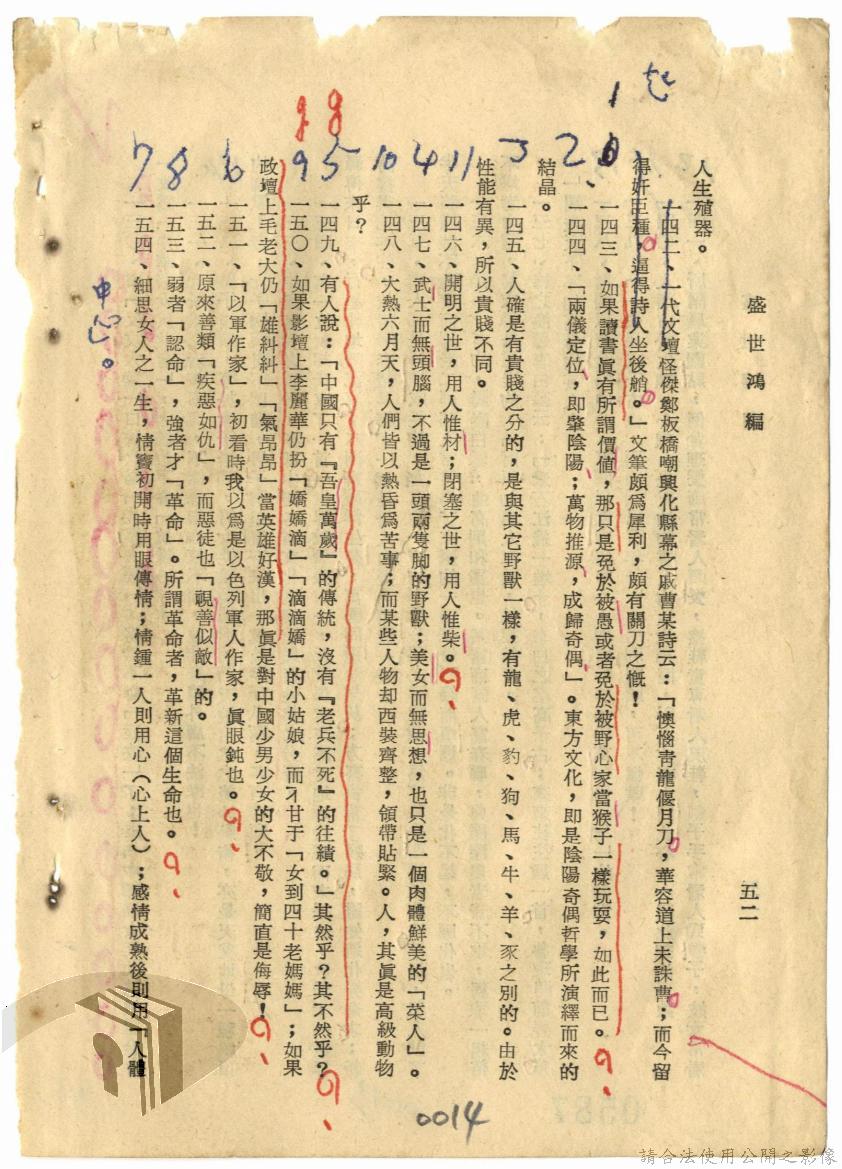 盛世鴻編
五二
人生殖器。
一四二、一代文壇怪傑鄭板橋嘲興化縣幕之戚曹某詩云：「懊惱靑龍偃月刀，華容道上未誅曹；而今留
得奸臣種，逼得詩人坐後艄。」文筆頗爲犀利，頗有關刀之慨！
一四三、如果讀書眞有所謂價值，那只是免於被愚或者免於被野心家當猴子一樣玩耍，如此而已。
一四四、「兩儀定位，即肇陰陽；萬物推源，成歸奇偶」。東方文化，即是陰陽奇偶哲學所演繹而來的
結晶。
一四五、人確是有貴賤之分的，是與其它野獸一樣，有龍、虎、豹、狗、馬、牛、羊、豕之別的。由於
性能有異，所以貴賤不同。
一四六、開明之世，用人惟材；閉塞之世，用人惟柴。
一四七、武士而無頭腦，不過是一頭兩隻脚的野獸；美女而無思想，也只是一個肉體鮮美的「菜人」。
一四八、大熱六月天，人們皆以熱昏爲苦事；而某些人物却西裝齊整，領帶貼緊。人，其眞是高級動物
乎？
一四九、有人說：「中國只有『吾皇萬歲』的傳統，沒有『老兵不死』的往績。」其然乎？其不然乎？
一五〇、如果影壇上李麗華仍扮「嬌嬌滴」「滴滴嬌」的小姑娘，而不甘于「女到四十老媽媽」；如果
政壇上毛老大仍「雄糾糾」「氣昂昂」當英雄好漢，那眞是對中國少男少女的大不敬，簡直是侮辱！
一五一、「以軍作家」，初看時我以爲是以色列軍人作家，眞眼鈍也。
一五二、原來善類「疾惡如仇」，而惡徒也「視善似敵」的。
一五三、弱者「認命」，強者才「革命」。所謂革命者，革新這個生命也。
一五四、細思女人之一生，情竇初開時用眼傳情；情鍾一人則用心（心上人）；感情成熟後則用「人體
中心」。
起
1
2
3
11
4
10
5
9
6
8
7
0014
請合法使用公開之影像